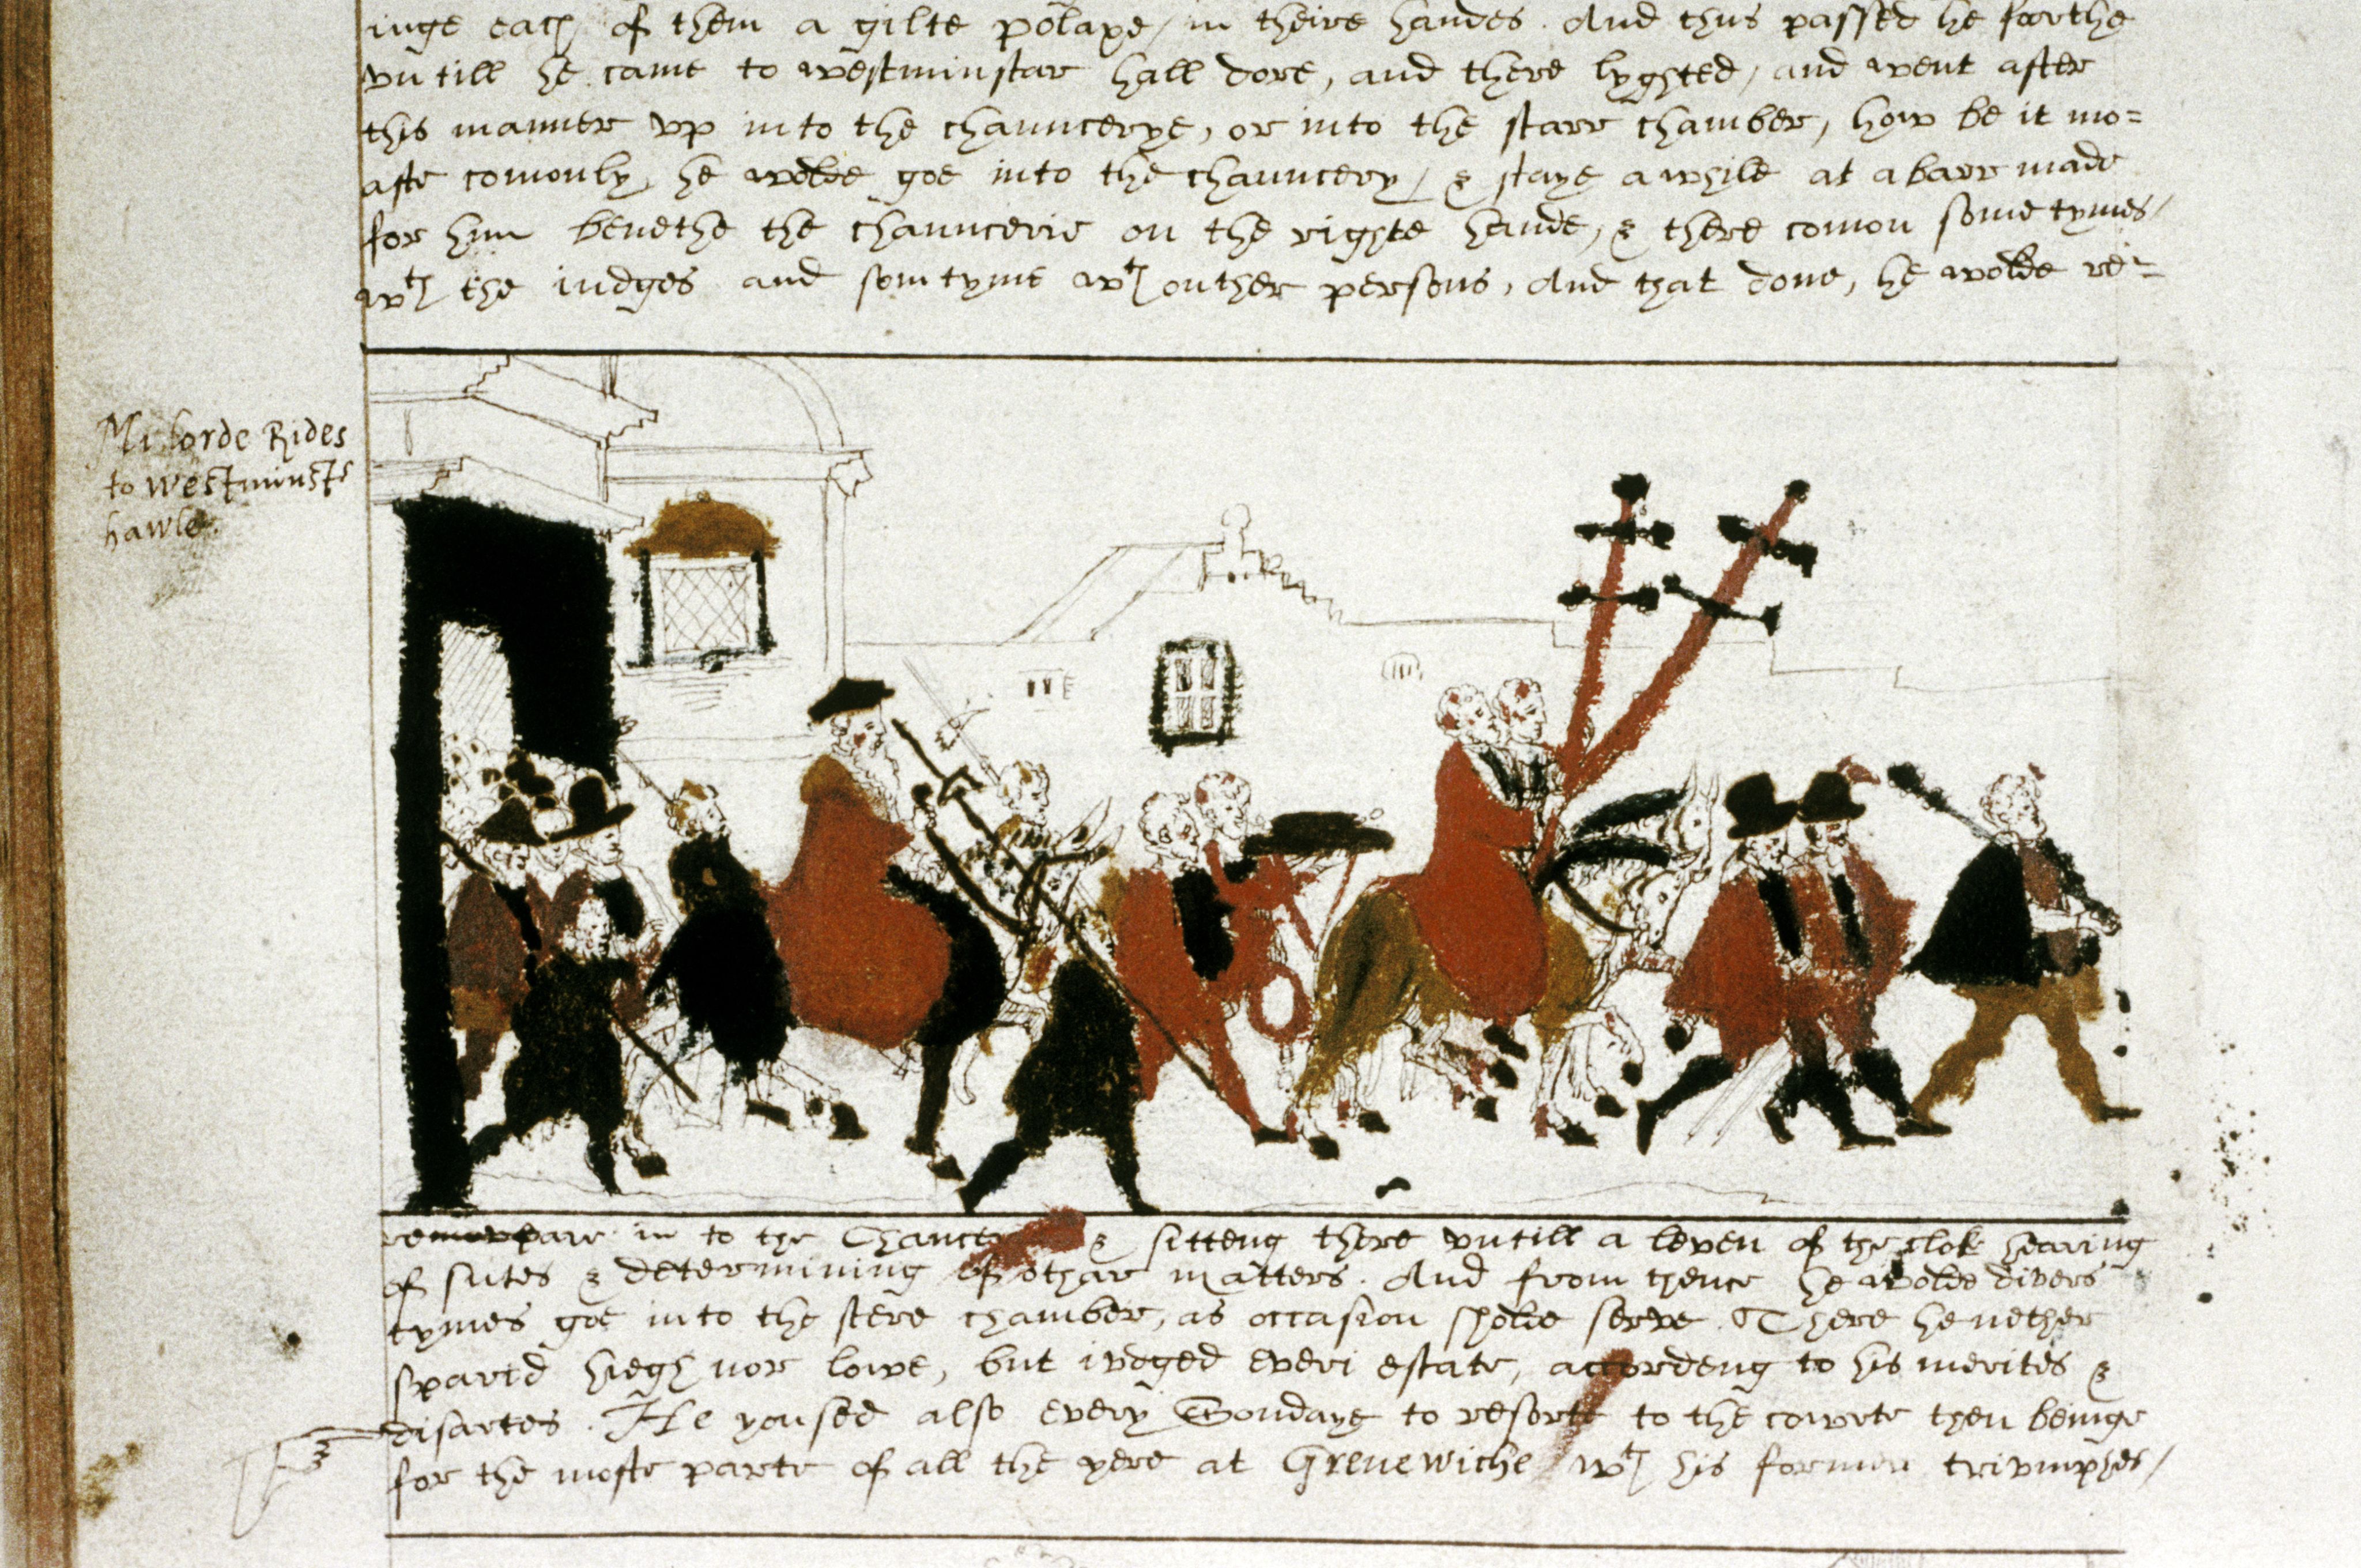 inge each of them a gilte polaxe / in theire handes. And thus passed he foorthe
vntill he came to westminstar hall dore, and there lyghted / and went after
this manner vp into the chauncerye, or into the starr chamber, how be it mo=
aste comonly, he wolde goe into the chauncery / & staye awhile at a barr made
for him benethe the chauncerie on the righte hande, & there comon some tymes /
wth the iudges and somtyme wth outher persons, And that done, he wolde re=
Mi lorde Rides
to westminstr
hawle.
repare in to the Chance & sitteng there vntill a leven of the clok hearing
of sutes & determining of othar matters. And from thence he wolde divers
tymes goe into the stere chamber, as occasion sholde serve. There he nether
spared hiegh nor lowe, but iudged everi estate, accordeng to his merites &
disartes. He yoused also every Sondaye to resorte to the cowrte then beinge
for the moste parte of all the yere at Grenewiche wth his former trivmphes /